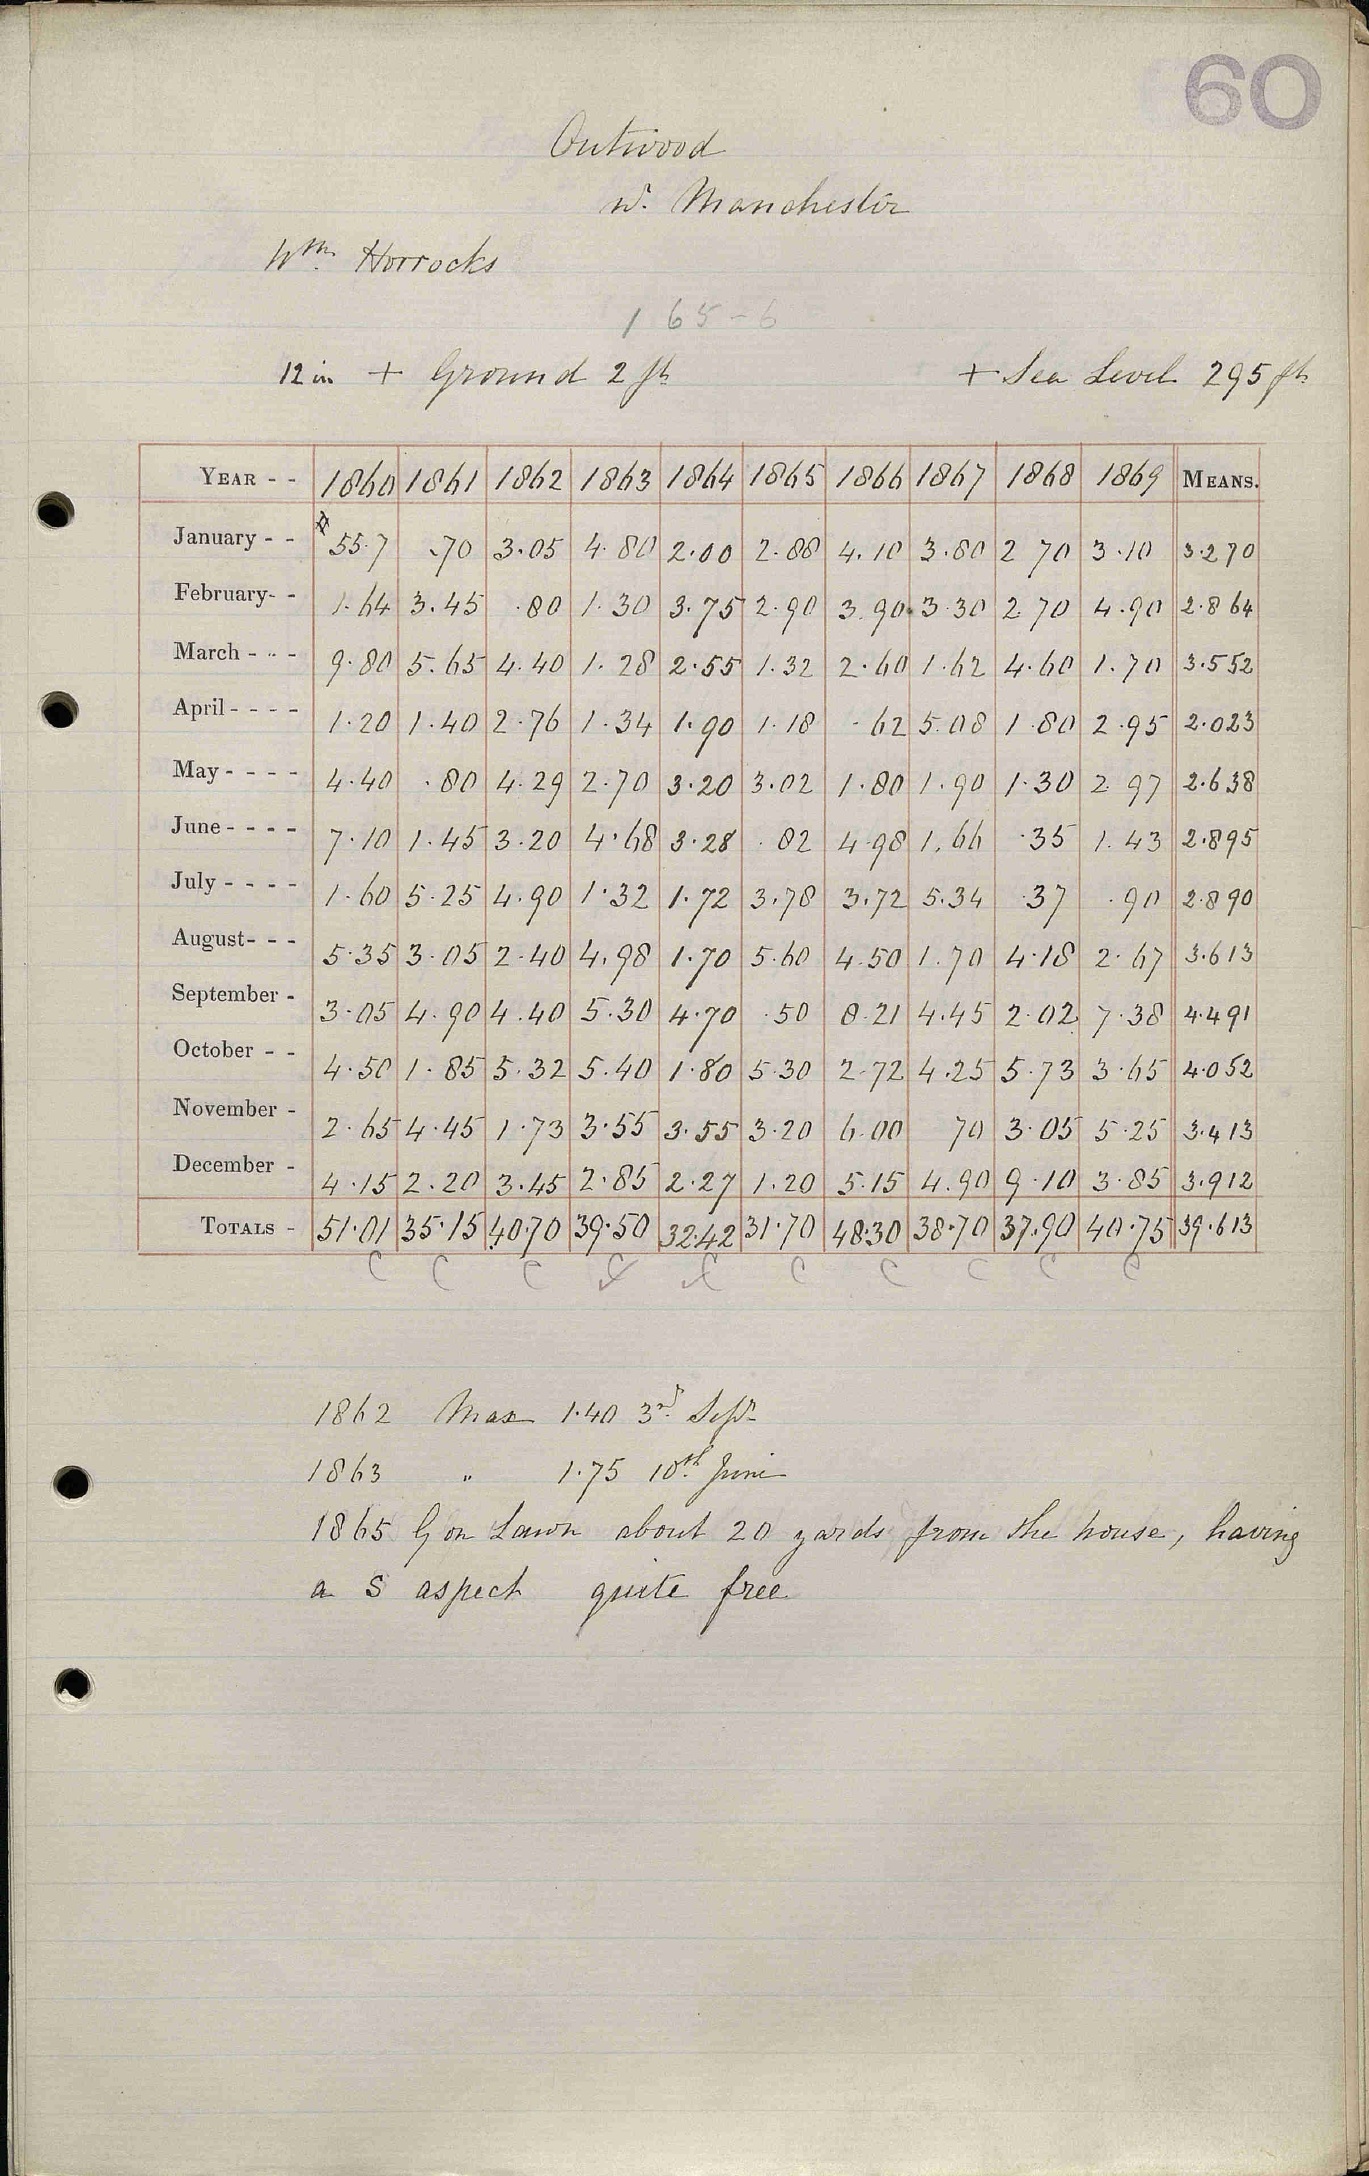 60
Outwood
nr. Manchester
Wm. Horrocks
165-6
12 in + Ground 2 ft + Sea Level 295 ft
YEAR - - 1860 1861 1862 1863 1864 1865 1866 1867 1868 1869 MEANS.
January - - 5.57 .70 3.05 4.80 2.00 2.88 4.10 3.80 2 70 3.10 3.270
February- - 1.64 3.45 .80 1.30 3.75 2.90 3.90 3.30 2.70 4.90 2.864
March - - - 9.80 5.65 4.40 1.28 2.55 1.32 2.60 1.62 4.60 1.70 3.552
April - - - - 1.20 1.40 2.76 1.34 1.90 1.18 .62 5.08 1.80 2.95 2.023
May - - - - 4.40 .80 4.29 2.70 3.20 3.02 1.80 1.90 1.30 2.97 2.638
June - - - - 7.10 1.45 3.20 4.68 3.28 .82 4.98 1.66 .35 1.43 2.895
July - - - - 1.60 5.25 4.90 1.32 1.72 3.78 3.72 5.34 .37 .90 2.890
August- - - 5.35 3.05 2.40 4.98 1.70 5.60 4.50 1.70 4.18 2.67 3.613
September - 3.05 4.90 4.40 5.30 4.70 .50 8.21 4.45 2.02 7.38 4.491
October - - 4.50 1.85 5.32 5.40 1.80 5.30 2.72 4.25 5.73 3.65 4.052
November - 2.65 4.45 1.73 3.55 3.55 3.20 6.00 70 3.05 5.25 3.413
December - 4.15 2.20 3.45 2.85 2.27 1.20 5.15 4.90 9.10 3.85 3.912
TOTALS - 51.01 35.15 40.70 39.50 32.42 31.70 48.30 38.70 37.90 40.75 39.613
C C C C C C C C C C
1862 Max 1.40 3rd. Sept
1863 " 1.75 10th. June
1865 G on Lawn about 20 yards from the house, having
a S aspect quite free